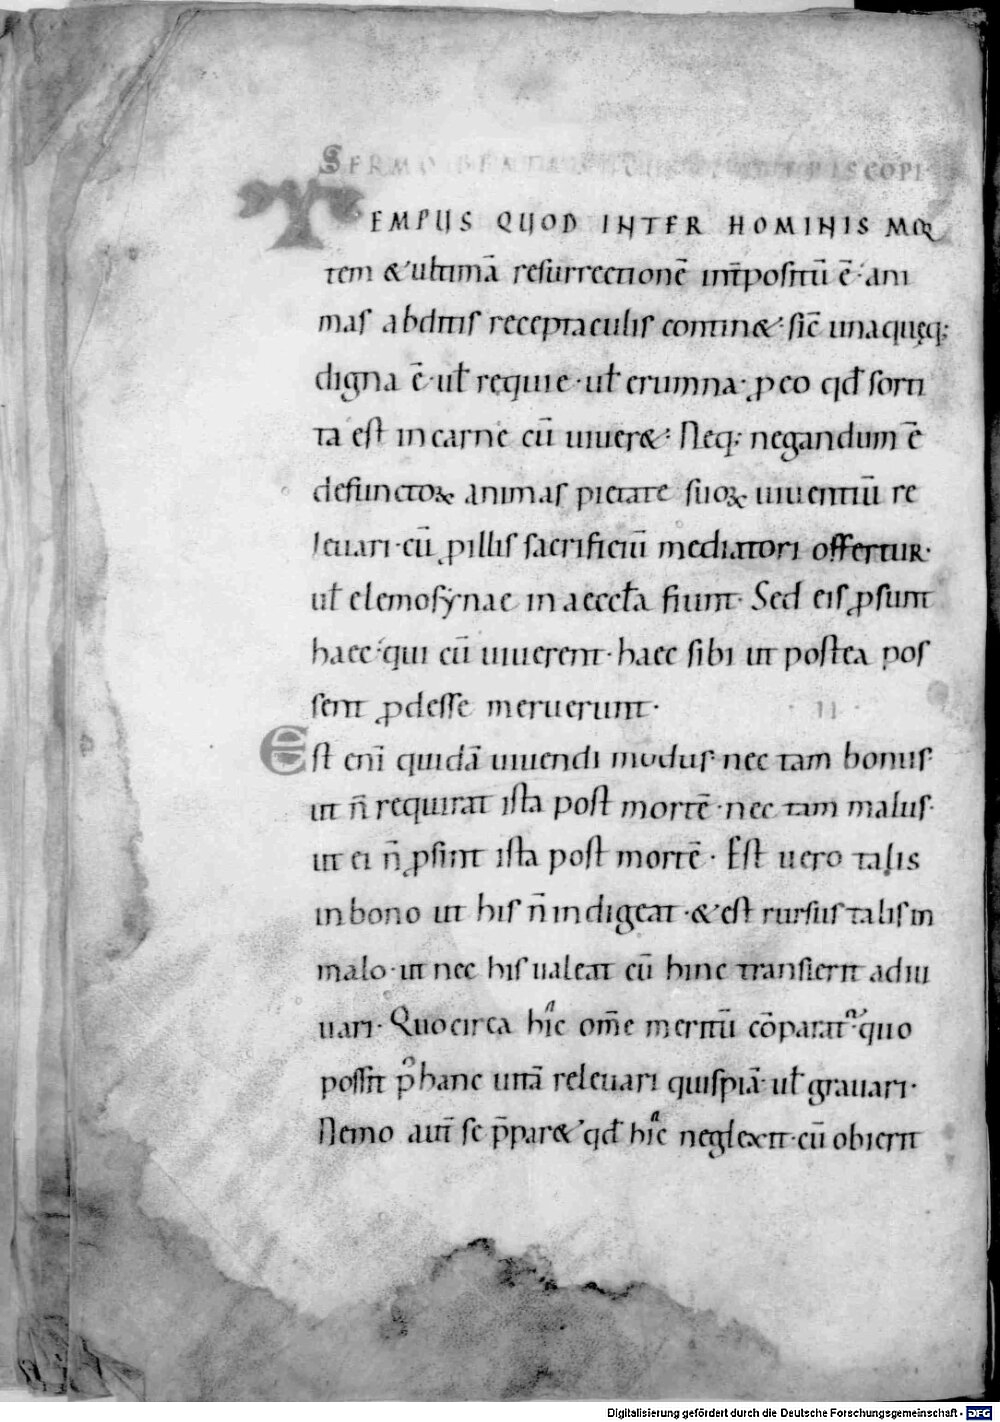 SERMO BEATI AUGUSTINI EPISCOPI
TEMPUS QUOD INTER HOMINIS MOR
tem &ultimā resurrectionē int̄positū ē· ani
mas abditis receptaculis contin&· sic̄ unaquęq;
digna ē· ul̄ requie· ul̄ erumna· ꝓ eo qđ sorti
ta est in carne cū uiuer&· Neq; negandum ē
defunctoꝝ animas pietate suoꝝ uiuentiū re
leuari· cū ꝓ illis sacrificiū mediatori offertur·
ul̄ elemosẏnae in aeccl̄a fiunt· Sed eis ꝓsunt
haec· qui cū uiuerent· haec sibi ut postea pos
sent ꝓdesse meruerunt· · II ·
Est eni̅ quidā uiuendi modus· nec tam bonus·
ut n̄ requirat ista post mortē· nec tam malus·
ut ei n̄ ꝓsint ista post mortē· Est uero talis
in bono ut his n̄ indigeat· &est rursus talis in
malo· ut nec his ualeat cū hinc transierit adiu
uari· Quocirca hic om̄e meritū cōparat̄· quo
possit p̄ hanc uitā releuari quispiā· ul̄ grauari·
Nemo aut̄ se p̄par&· qđ hic neglexit· cū obierit
Digitalisierung gefördert durch die Deutsche Forschungsgemeinschaft - DFG